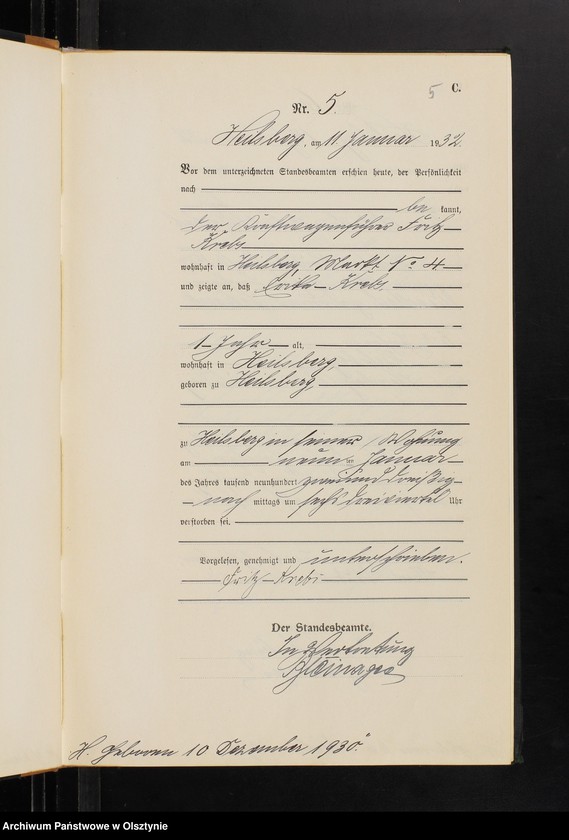 5 C.
Nr. 5.
Heilsberg, am 11 Januar 1932.
Vor dem unterzeichneten Standesbeamten erschien heute, der Persönlichkeit
nach
be kannt,
der Kraftwagenführer Fritz
Krebs
wohnhaft in Heilsberg, Markt No 4
und zeigte an, daß Erika Krebs,
1 Jahr alt,
wohnhaft in Heilsberg,
geboren zu Heilsberg,
zu Heilsberg in seiner Wohnung
am neunten Januar
des Jahres tausend neunhundert zweiunddreißig
nach mittags um sechs dreiviertel Uhr
verstorben sei.
Vorgelesen, genehmigt und unterschrieben.
Fritz Krebs
Der Standesbeamte.
In Vertretung
H. Geboren 10 Dezember 1930
Archiwum Państwowe w Olsztynie